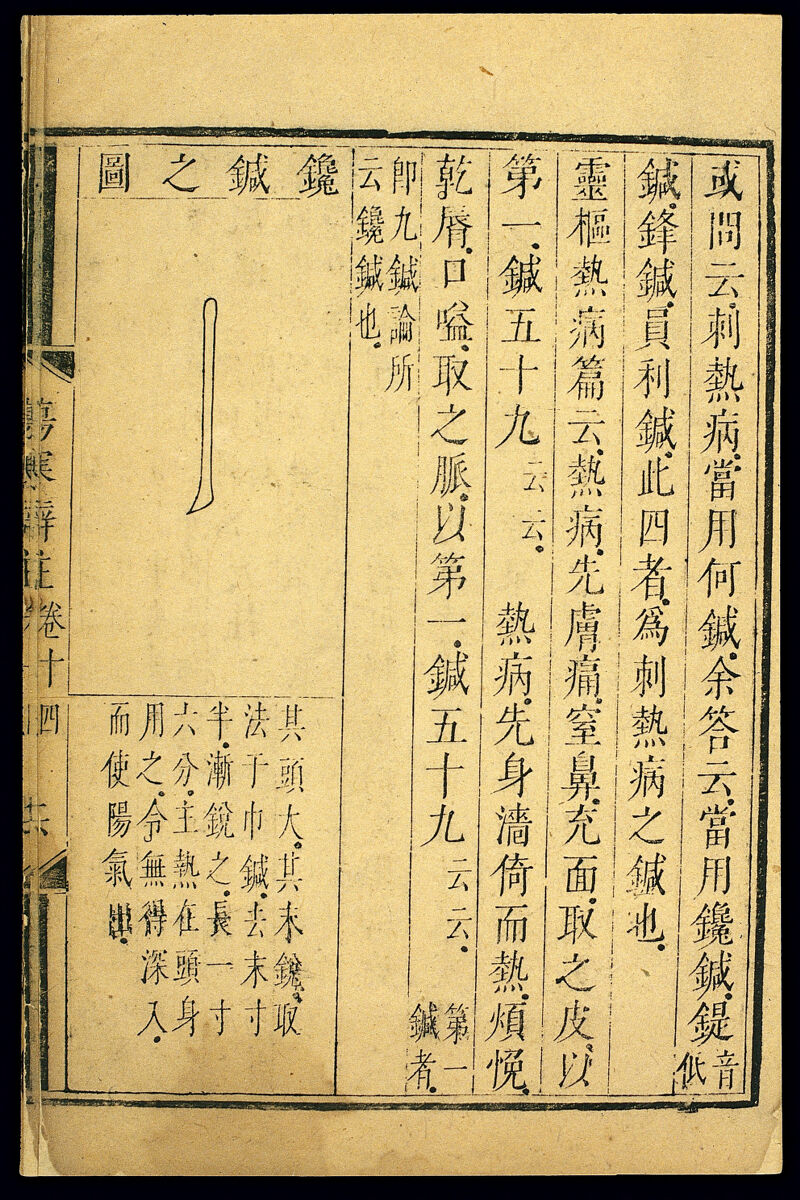 或問云刺熱病當用何鍼余答云當用鑱鍼鍉音低
鍼鋒鍼員利鍼此四者爲刺熱病之鍼也
靈樞熱病篇云熱病先膚痛窒鼻充面取之皮以
第一鍼五十九云云　熱病先身濇倚而熱煩悗
乾脣口嗌取之脈以第一鍼五十九云云第一鍼者
卽九鍼論所
云鑱鍼也
鑱鍼之圖
其頭大其末銳取
法于巾鍼去末寸
半漸銳之長一寸
六分主熱在頭身
用之令無得深入
而使陽氣出
傷寒辯註
卷十四